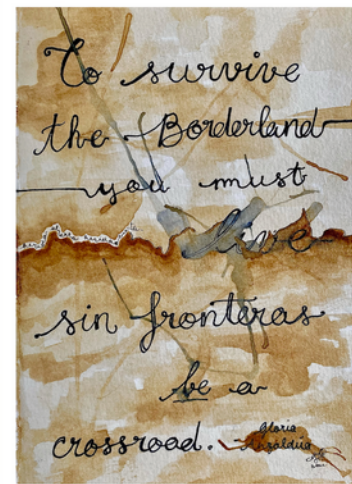 To survive
the Borderland
you must
live
sin fronteras
be a
crossroad.
Gloria
Anzaldúa